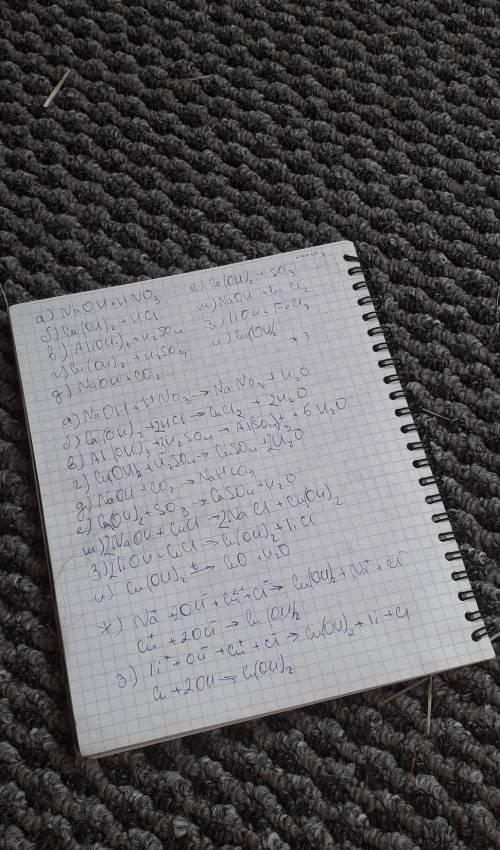 а) NaOH + HNO3
б) Ca(OH)2 + HCl
в) Al(OH)3 + H2SO4
г) Cu(OH)2 + H2SO4
д) NaOH + CO2
е) Ca(OH)2 + SO3
ж) NaOH + CuCl2
з) LiOH + FeCl3
и) Cu(OH)2
* з
а) NaOH + HNO3 → NaNO3 + H2O
б) Ca(OH)2 + 2HCl → CaCl2 + 2H2O
в) Al(OH)3 + 3H2SO4 → Al(SO4)3 + 6H2O
г) Cu(OH)2 + H2SO4 → CuSO4 + 2H2O
д) NaOH + CO2 → NaHCO3
е) Ca(OH)2 + SO3 → CaSO4 + H2O
ж) 2NaOH + CuCl → 2NaCl + Cu(OH)2
з) 2LiOH + CuCl → Cu(OH)2 + LiCl
и) Cu(OH)2 t→ CuO + H2O
ж) Na+ + 2OH- + Cu+ + Cl- → Cu(OH)2 + Na+ + Cl-
Cu+ + 2OH- → Cu(OH)2
з) Li+ + OH- + Cu+ + Cl- → Cu(OH)2 + Li + Cl
Cu + 2OH → Cu(OH)2